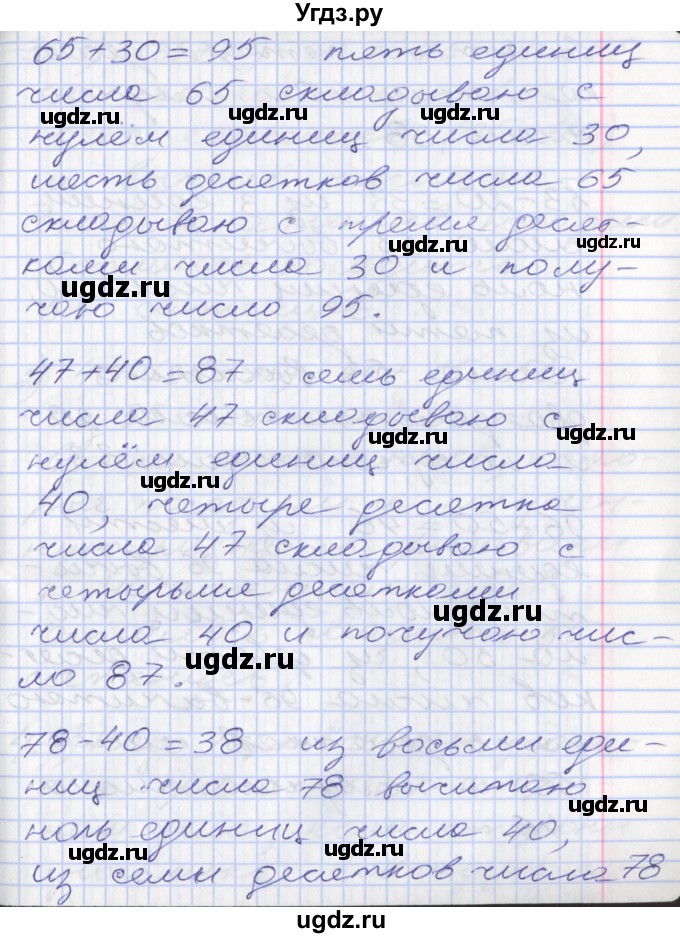 Угдз.ру
65+30=95 пять единиц
числа 65 складываю с
ugdz.ru ugdz.ru ugdz.ru
нулём единиц числа 30,
шесть десятков числа 65
складываю с тремя десят-
ugdz.ru ugdz.ru
ками числа 30 и полу-
ugdz.ru
чаю число 95.
47+40=87 семь единиц
числа 47 складываю с
ugdz.ru
нулём единиц числа
ugdz.ru
40, четыре десятка
числа 47 складываю с
четырьмя десятками
ugdz.ru
числа 40 и получаю чис-
ugdz.ru
ло 87.
78-40=38 из восьми еди-
ниц числа 78 вычитаю
ugdz.ru
ноль единиц числа 40,
ugdz.ru ugdz.ru
из семи десятков числа 78
ugdz.ru